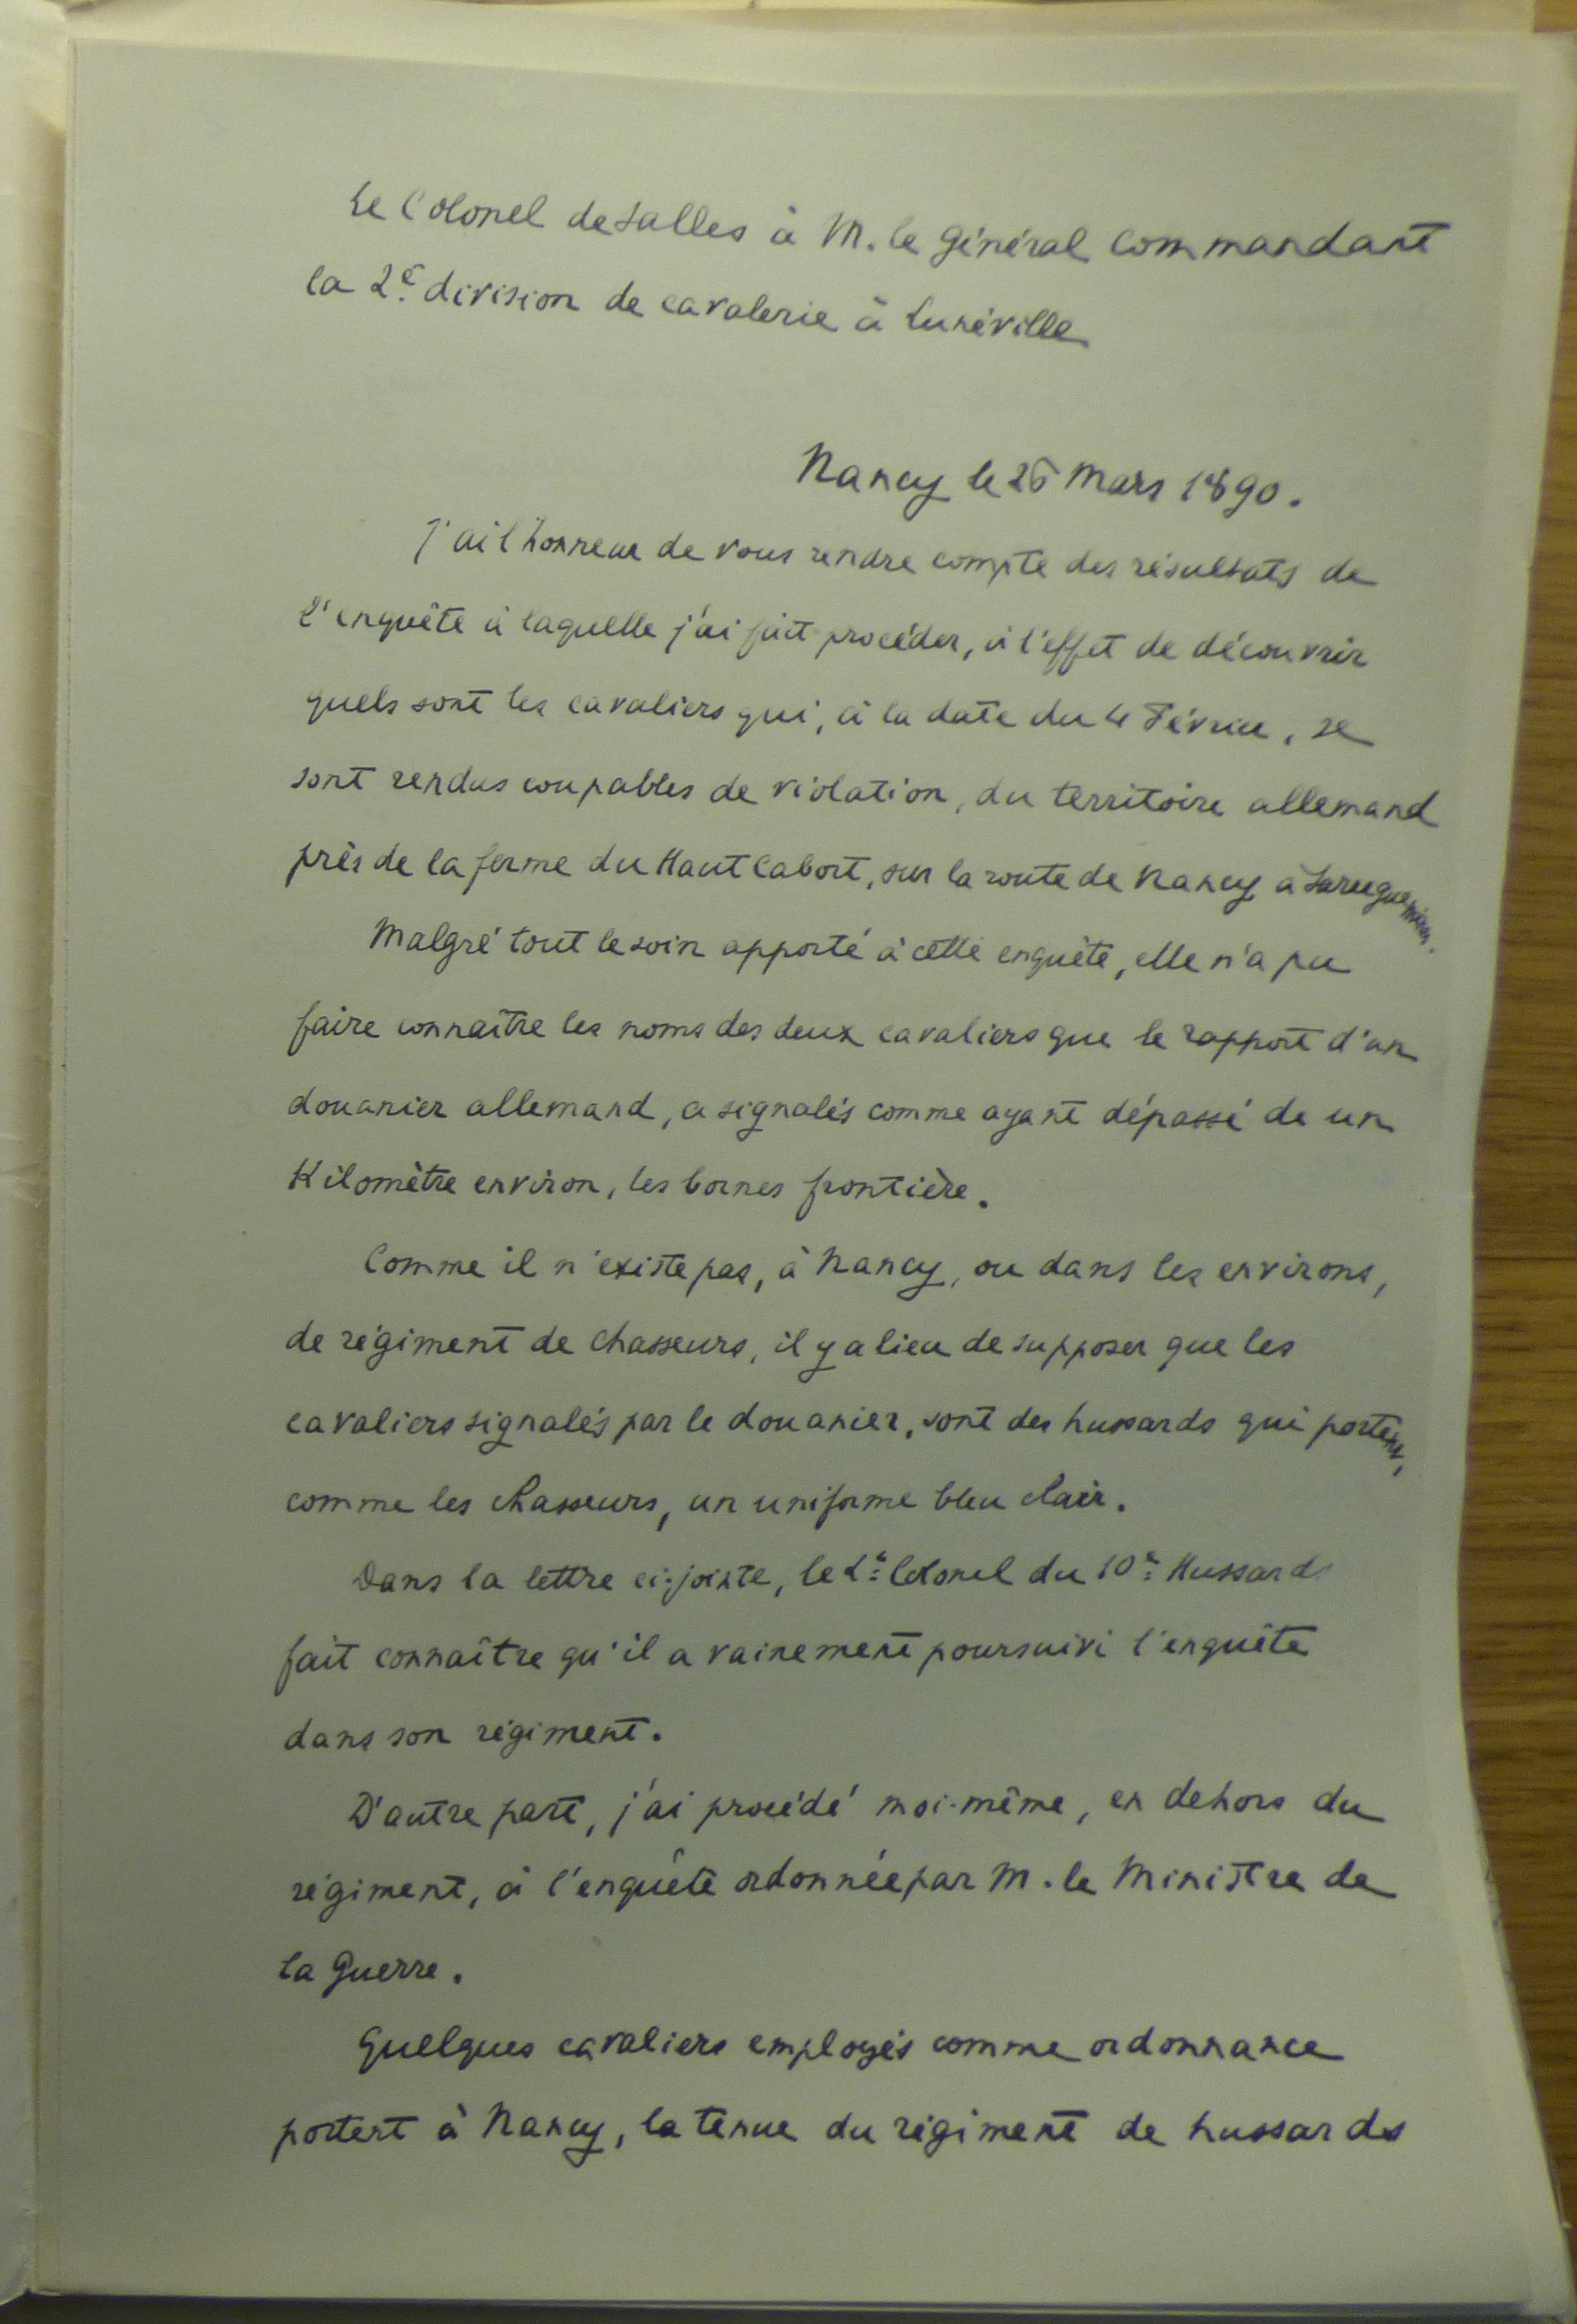 Le Colonel de Salles à M. le Général Commandant
la 2e division de cavalerie à Lunéville
Nancy le 26 Mars 1890.
J'ai l'honneur de vous rendre compte des résultats de
l'enquête à laquelle j'ai fait procéder, à l'effet de découvrir
quels sont les cavaliers qui, à la date du 4 Février, se
sont rendus coupables de violation, du territoire allemand
près de la ferme du Haut Cabort, sur la route de Nancy à Sarreguemines.
Malgré tout le soin apporté à cette enquête, elle n'a pu
faire connaître les noms des deux cavaliers que le rapport d'un
douanier allemand, a signalés comme ayant dépassé de un
Kilomètre environ, les bornes frontière.
Comme il n'existe pas, à Nancy, ou dans les environs,
de régiment de chasseurs, il y a lieu de supposer que les
cavaliers signalés par le douanier, sont des hussards qui portent,
comme les chasseurs, un uniforme bleu clair.
Dans la lettre ci-jointe, le Lt Colonel du 10e Hussards
fait connaître qu'il a vainement poursuivi l'enquête
dans son régiment.
D'autre part, j'ai procédé moi-même, en dehors du
régiment, à l'enquête ordonnée par M. le Ministre de
la Guerre.
Quelques cavaliers employés comme ordonnance
portent à Nancy, la tenue du régiment de hussards